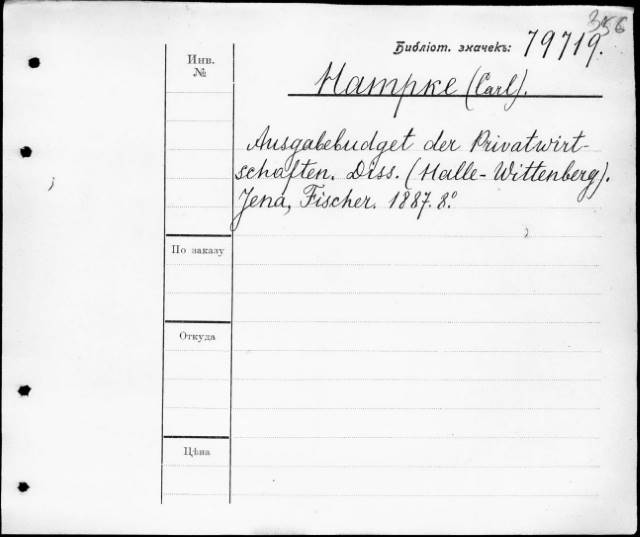 356
Библіот. значекъ: 79719.
Инв. №
Hampke (Carl).
Ausgabebudget der Privatwirt-
schaften. Diss. (Halle-Wittenberg).
Jena, Fischer. 1887. 8.º
По заказу
Откуда
Цѣна